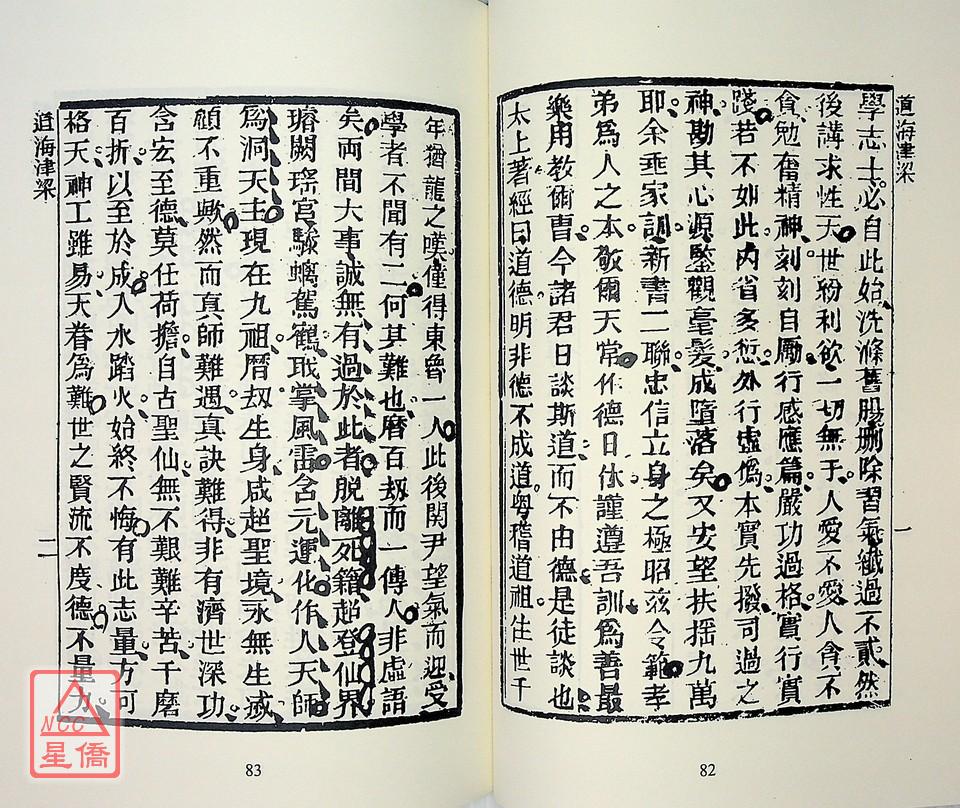 道海津梁
一
學志士必自此始洗滌舊腸刪除習氣纖過不貳然
後講求性天世紛利欲一切無于人愛不愛人貪不
貪勉奮精神刻刻自勵行感應篇嚴功過格實行實
踐若不如此內省多愆外行虛偽本實先撥司過之
神勘其心源鑒觀毫髮成墮落矣又安望扶搖九萬
耶余乖家訓新書二聯忠信立身之極昭茲令範孝
弟為人之本敬爾天常作德日休謹遵吾訓為善最
樂用教術曹今諸君日談斯道而不由德是徒談也
太上著經曰道德明非德不成道粵稽道祖生世千
82
年猶龍之嘆僅得東魯一人此後関尹望氣而迎受
學者不聞有二何其難也曆百刼而一傳人非虛語
矣両間大事誠無有過於此者脫離死籍超登仙界
璿闕瑶宮驂螭駕鶴職掌風雷含元運化作人天師
為洞天主現在九祖曆刼生身咸超聖境永無生滅
顧不重歟然而真師難遇真訣難得非有濟世深功
含宏至德莫任荷擔自古聖仙無不艱難辛苦千磨
百折以至於成入水蹈火始終不悔有此志量方可
格天神工雖易天眷為難世之賢流不度德不量力
道海津梁
二
83
NCC
星僑